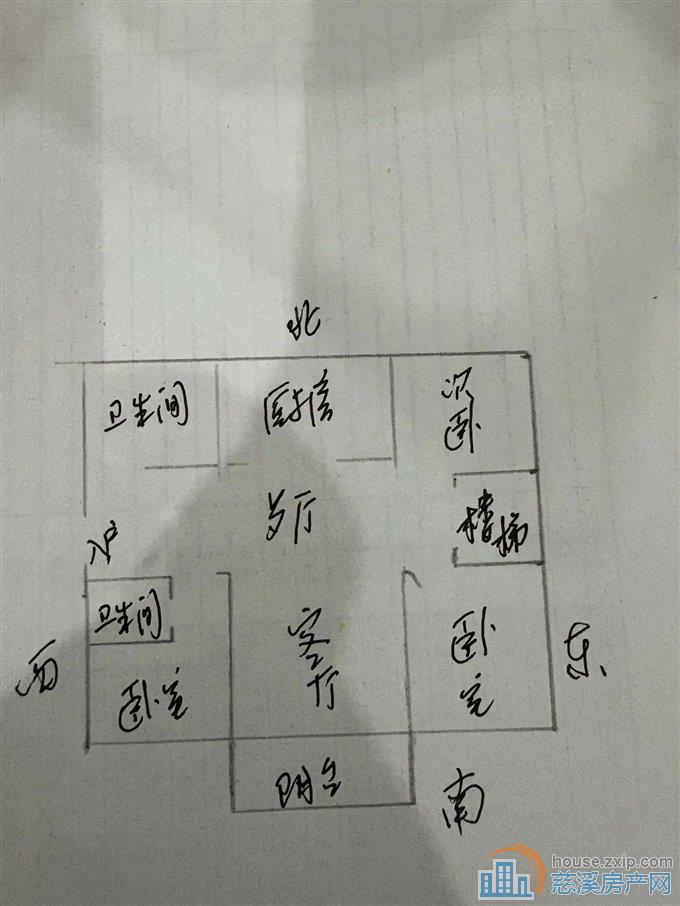 北
卫生间
厨房
次卧
餐厅
楼梯
入户
卫生间
客厅
卧室
卧室
西
东
阳台
南
house.zxip.com
慈溪房产网